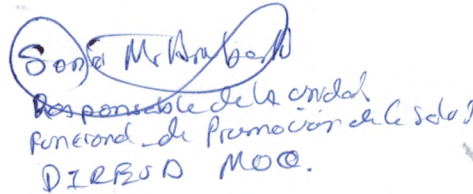 Sonia M.
Responsable de la unidad
Funcional de Promoción de la Salud
DIRESA MOQ.